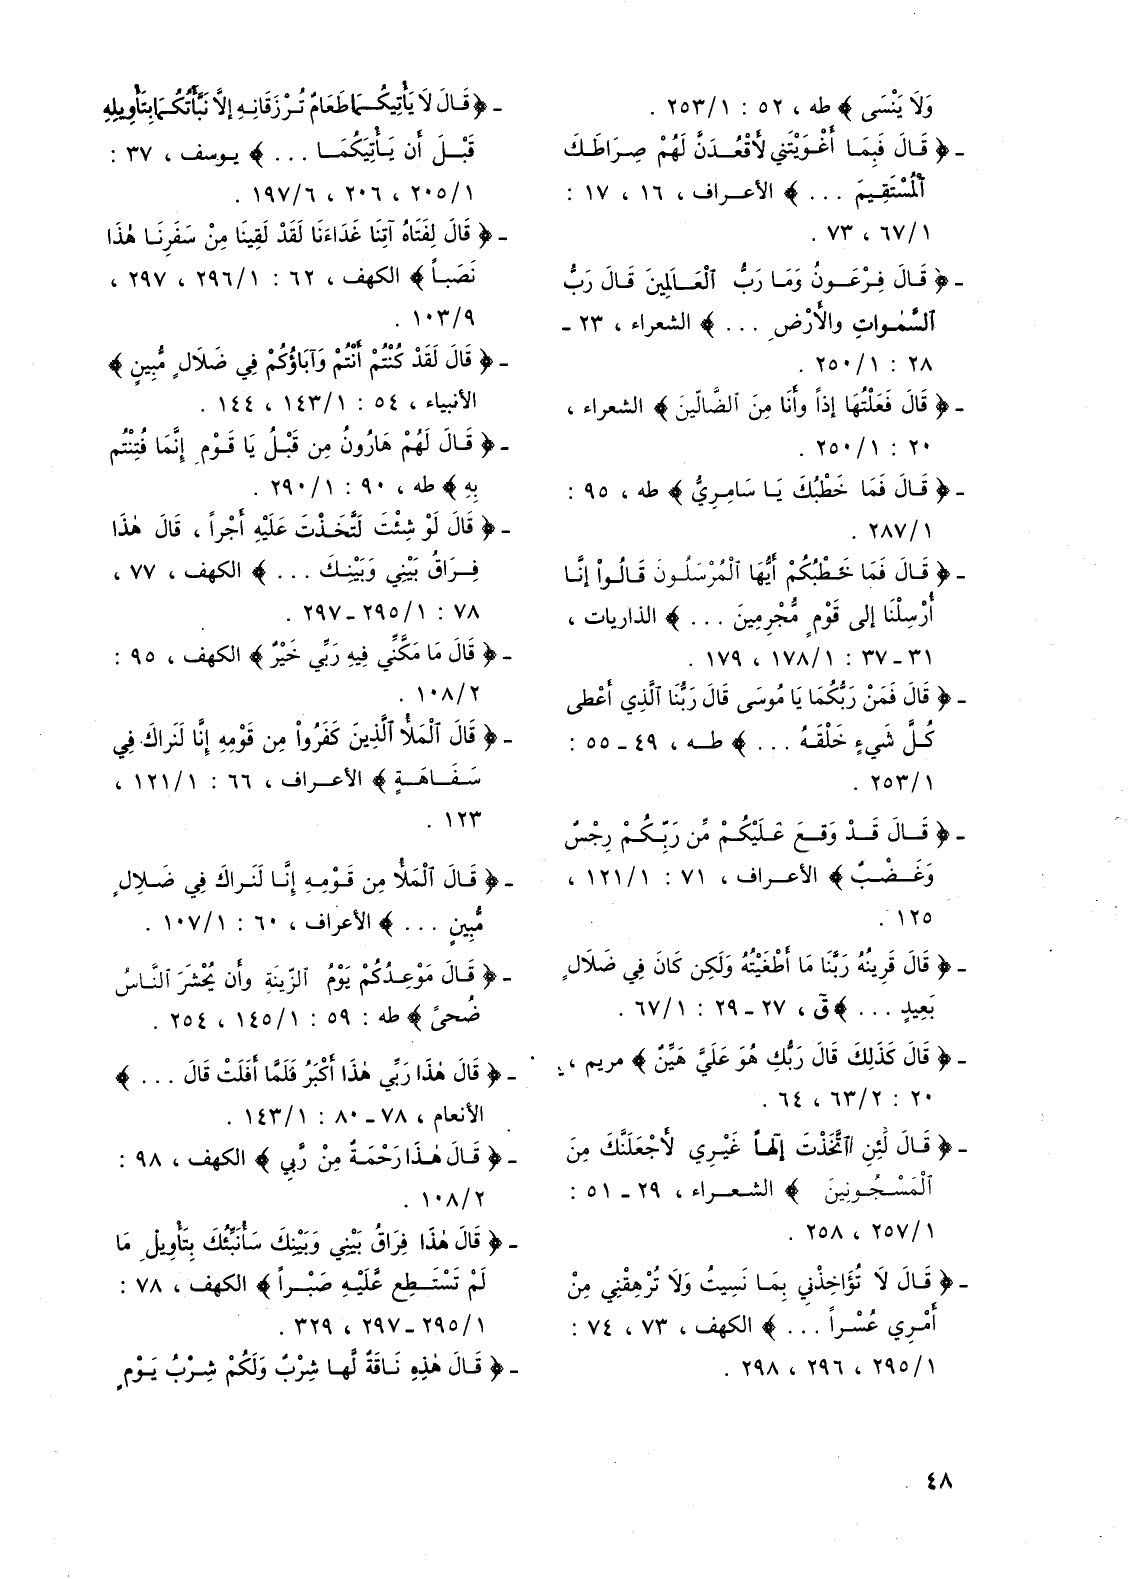 وَلَا يَنْسَى ﴾ طه ، ٥٢ : ٢٥٣/١ .
- ﴿ قَـالَ فَبِمَـا أَغْـوَيْتَنِي لَأَقْعُـدَنَّ لَهُمْ صِـرَاطَـكَ
ٱلْمُسْتَقِيمَ ... ﴾ الأعـراف ، ١٦ ، ١٧ :
٦٧/١ ، ٧٣ .
- ﴿ قَـالَ فِـرْعَـونُ وَمَـا رَبُّ ٱلْعَـالَمِينَ قَـالَ رَبُّ
ٱلسَّمٰـواتِ والأَرْضِ ... ﴾ الشعراء ، ٢٣ -
٢٨ : ٢٥٠/١ .
- ﴿ قَالَ فَعَلْتُهَا إِذاً وأَنَا مِنَ ٱلضَّالِّينَ ﴾ الشعراء ،
٢٠ : ٢٥٠/١ .
- ﴿ قَـالَ فَمَا خَطْبُكَ يَـا سَامِـرِيُّ ﴾ طه ، ٩٥ :
٢٨٧/١ .
- ﴿ قَـالَ فَمَا خَـطْبُكُمْ أَيُّهَا ٱلْمُرْسَلُـونَ قَـالُـواْ إِنَّـا
أُرْسِلْنَا إلى قَوْمٍ مُّجْرِمِينَ ... ﴾ الذاريات ،
٣١ - ٣٧ : ١٧٨/١ ، ١٧٩ .
- ﴿ قَالَ فَمَنْ رَبُّكُمَا يَا مُوسَى قَالَ رَبُّنَا ٱلَّذِي أَعْطى
كُـلَّ شَيءٍ خَلْقَـهُ ... ﴾ طـه ، ٤٩ - ٥٥ :
٢٥٣/١ .
- ﴿ قَـالَ قَـدْ وَقَـعَ عَـلَيْكُـمْ مِّن رَبِّـكُـمْ رِجْسٌ
وَغَـضَـبٌ ﴾ الأعـراف ، ٧١ : ١٢١/١ ،
١٢٥ .
- ﴿ قَالَ قَرِينُهُ رَبَّنَا مَا أَطْغَيْتُهُ وَلَكِن كَانَ فِي ضَلَالٍ
بَعِيدٍ ... ﴾ قَ ، ٢٧ - ٢٩ : ٦٧/١ .
- ﴿ قَالَ كَذَلِكَ قَالَ رَبُّكِ هُوَ عَلَيَّ هَيِّنٌ ﴾ مريم ،
٢٠ : ٦٣/٢ ، ٦٤ .
- ﴿ قَـالَ لَئِنِ ٱتَّخَذْتَ إِلَهاً غَيْـرِي لَأَجْعَلَنَّكَ مِنَ
ٱلْمَسْـجُـونِينَ ﴾ الشـعـراء ، ٢٩ - ٥١ :
٢٥٧/١ ، ٢٥٨ .
- ﴿ قَـالَ لَا تُؤَاخِذْنِي بِمَـا نَسِيتُ وَلَا تُرْهِقْنِي مِنْ
أَمْرِي عُسْـراً ... ﴾ الكهف ، ٧٣ ، ٧٤ :
٢٩٥/١ ، ٢٩٦ ، ٢٩٨ .
- ﴿ قَـالَ لَا يَأْتِيكُـمَا طَعَامٌ تُـرْزَقَانِـهِ إِلَّا نَبَّأْتُكُمَا بِتَأْوِيلِهِ
قَبْـلَ أَن يَـأْتِيَكُمَـا ... ﴾ يـوسف ، ٣٧ :
٢٠٥/١ ، ٢٠٦ ، ١٩٧/٦ .
- ﴿ قَالَ لِفَتَاهُ آتِنَا غَدَاءَنَا لَقَدْ لَقِينَا مِنْ سَفَرِنَـا هٰذَا
نَصَبـاً ﴾ الكهف ، ٦٢ : ٢٩٦/١ ، ٢٩٧ ،
١٠٣/٩ .
- ﴿ قَالَ لَقَدْ كُنْتُمْ أَنْتُمْ وَآبَاؤُكُمْ فِي ضَلَالٍ مُّبِينٍ ﴾
الأنبياء ، ٥٤ : ١٤٣/١ ، ١٤٤ .
- ﴿ قَـالَ لَهُمْ هَارُونُ مِن قَبْـلُ يَا قَـوْمِ إِنَّمَا فُتِنْتُم
بِهِ ﴾ طه ، ٩٠ : ٢٩٠/١ .
- ﴿ قَالَ لَوْ شِئْتَ لَتَّخَـذْتَ عَلَيْهِ أَجْراً ، قَالَ هٰذَا
فِـرَاقُ بَيْنِي وَبَيْنِـكَ ... ﴾ الكهف ، ٧٧ ،
٧٨ : ٢٩٥/١ - ٢٩٧ .
- ﴿ قَالَ مَا مَكَّنِّي فِيهِ رَبِّي خَيْرٌ ﴾ الكهف ، ٩٥ :
١٠٨/٢ .
- ﴿ قَالَ ٱلْمَلأُ ٱلَّذِينَ كَفَرُواْ مِن قَوْمِهِ إِنَّا لَنَراكَ فِي
سَـفَـاهَـةٍ ﴾ الأعـراف ، ٦٦ : ١٢١/١ ،
١٢٣ .
- ﴿ قَـالَ ٱلْمَلأُ مِن قَـوْمِـهِ إِنَّـا لَنَـراكَ فِي ضَـلالٍ
مُّبِينٍ ... ﴾ الأعراف ، ٦٠ : ١٠٧/١ .
- ﴿ قَـالَ مَوْعِـدُكُمْ يَوْمُ ٱلزِّينَةِ وأَن يُحْشَرَ ٱلنَّـاسُ
ضُحىً ﴾ طه : ٥٩ : ١٤٥/١ ، ٢٥٤ .
- ﴿ قَالَ هٰذَا رَبِّي هٰذَا أَكْبَرُ فَلَمَّا أَفَلَتْ قَالَ ... ﴾
الأنعام ، ٧٨ - ٨٠ : ١٤٣/١ .
- ﴿ قَـالَ هٰـذَا رَحْمَـةٌ مِنْ رَّبِي ﴾ الكهف ، ٩٨ :
١٠٨/٢ .
- ﴿ قَالَ هٰذَا فِرَاقُ بَيْنِي وَبَيْنِكَ سَأُنَبِّئُكَ بِتَأْوِيلِ مَا
لَمْ تَسْتَـطِع عَّلَيْـهِ صَبْـراً ﴾ الكهف ، ٧٨ :
٢٩٥/١ - ٢٩٧ ، ٣٢٩ .
- ﴿ قَـالَ هٰذِهِ نَـاقَةٌ لَّهـا شِرْبٌ وَلَكُمْ شِـرْبُ يَـوْمٍ
٤٨